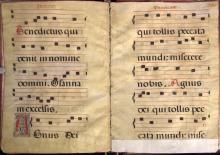 Benedictus qui
venit in nomine
domini. Osanna
in excelsis.
Agnus Dei
qui tollis peccata
mundi: miserere
nobis. Agnus
Dei qui tollis pec
cata mundi: mise